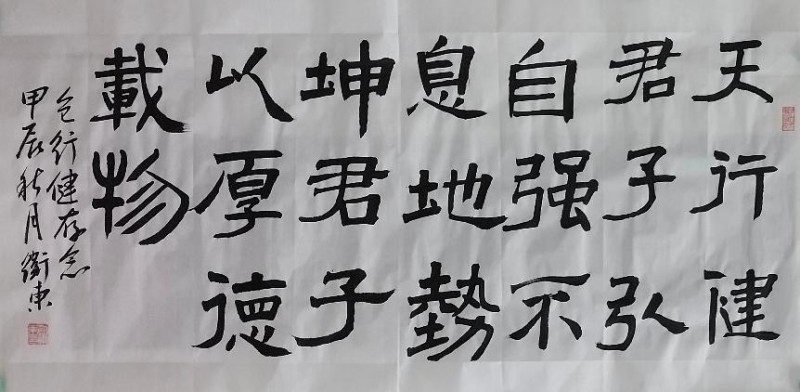 天行健
君子以
自强不
息地勢
坤君子
以厚德
載物
包行健存念
甲辰秋月衛東